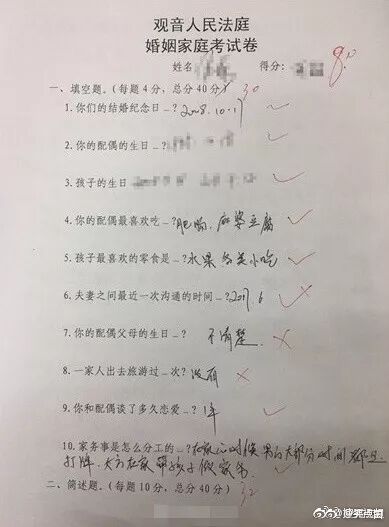 观音人民法庭
婚姻家庭考试卷
姓名 得分:
一、填空题.(每题4分，总分40分) 30
1.你们的结婚纪念日_?2008.10.17
2.你的配偶的生日_?
3.孩子的生日
4.你的配偶最喜欢吃_?肥肠、麻婆豆腐
5.孩子最喜欢的零食是_?水果 各类小吃
6.夫妻之间最近一次沟通的时间_?2017.6
7.你的配偶父母的生日_? 不清楚.
8.一家人出去旅游过_次? 没有
9.你和配偶谈了多久恋爱_? 1年
10.家务事是怎么分工的_?在家的时候男的大部分时间都是
打牌、女方在家带孩子做家务
二、简述题.(每题10分，总分40分) 32